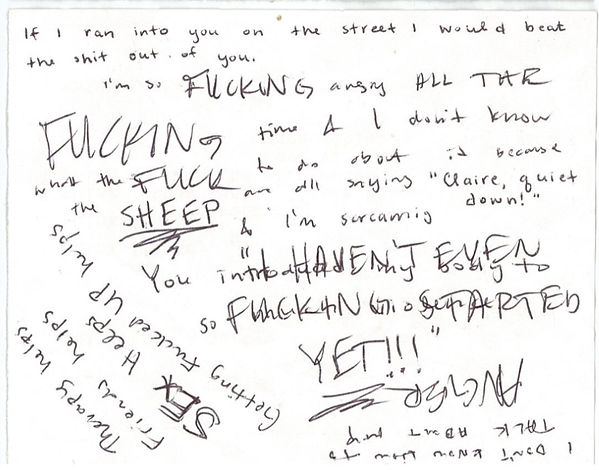 If I ran into you on the street I would beat
the shit out of you.
I'm so FUCKING angry ALL THE
FUCKING time & I don't know
what the FUCK to do about it because
the SHEEP are all saying "Claire, quiet down!"
& I'm screaming
"I HAVEN'T EVEN
FUCKING STARTED
YET!!!"
You my body to
so
Getting Fucked UP helps
SEX Helps
Friends helps
Therapy helps
ANGER
I DON'T KNOW HOW TO
TALK ABOUT my